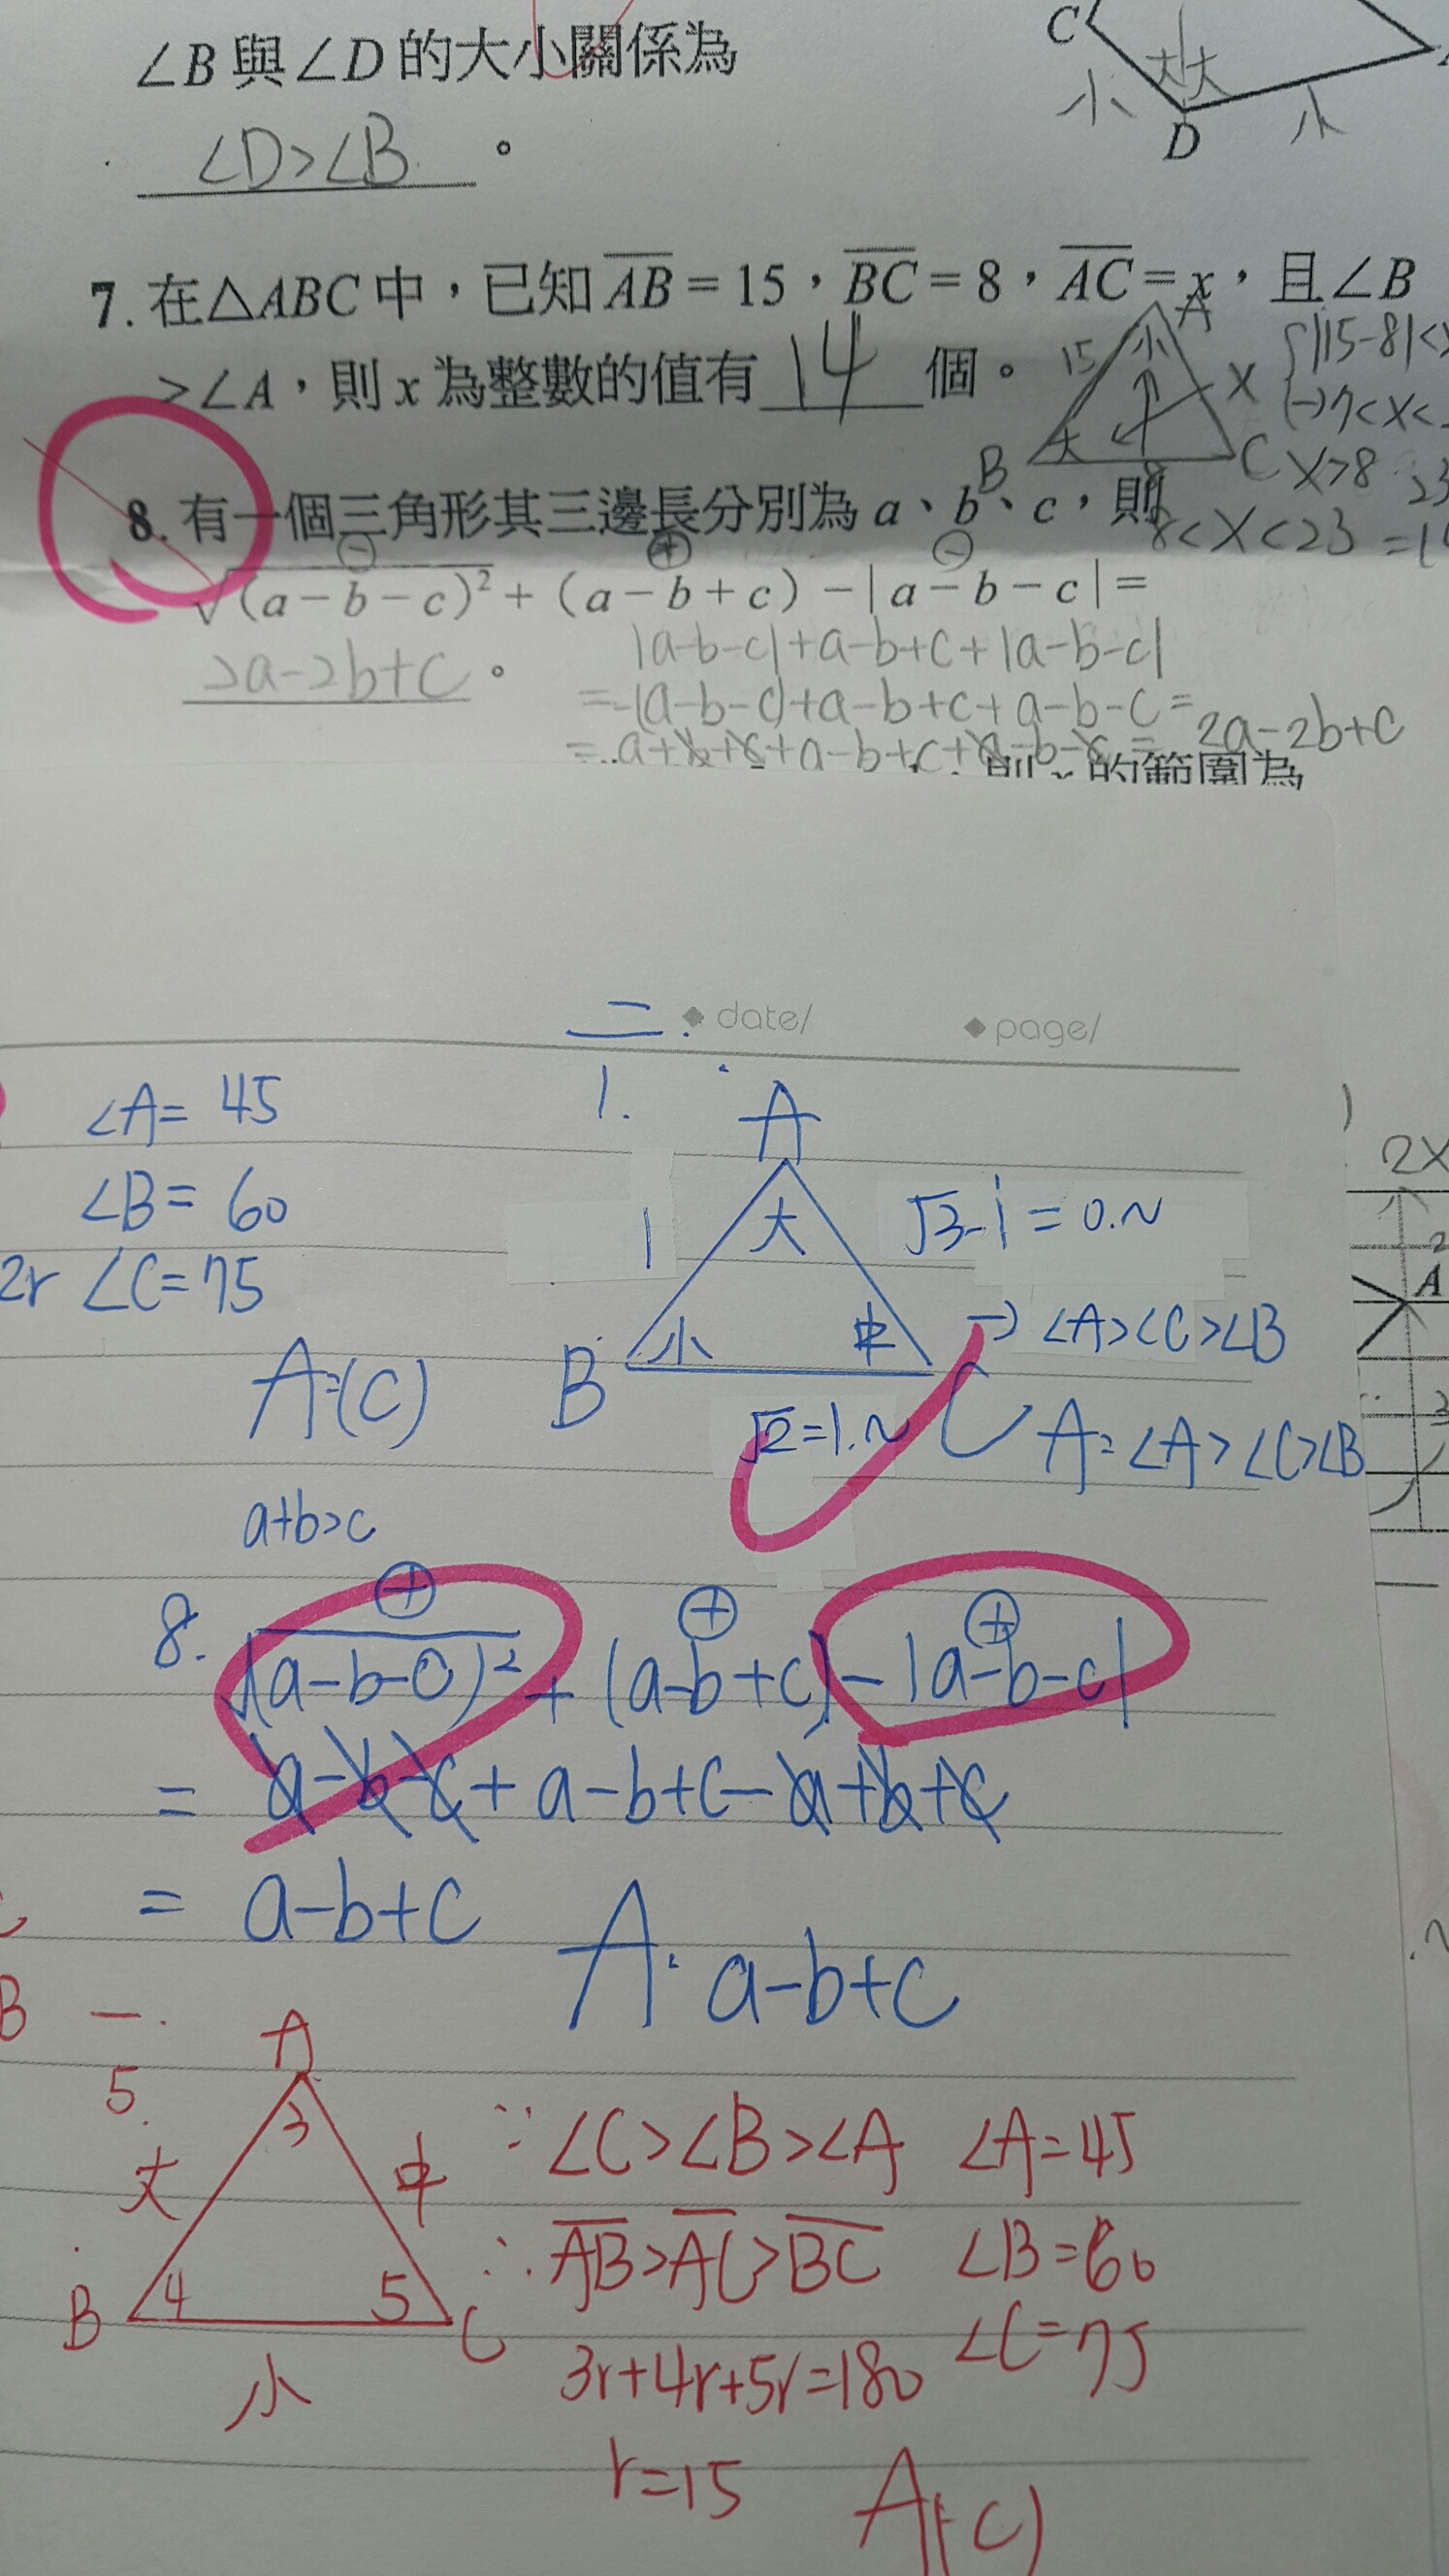 ∠B 與∠D 的大小關係為
∠D>∠B 。
C
小
大大
小
D
7. 在△ABC 中，已知 AB = 15，BC = 8，AC = x，且∠B
>∠A，則 x 為整數的值有 14 個。
A
15
小
x
B
大
8
C
|15-8|<x
→7<x<
x>8
23
8<x<23 =14
8. 有一個三角形其三邊長分別為 a、b、c，則
⊖ ⊕ ⊖
√(a－b－c)² +（a－b＋c）－|a－b－c| =
2a-2b+c 。
|a-b-c|+a-b+c+|a-b-c|
=-(a-b-c)+a-b+c+a-b-c=
2a-2b+c
= a+b+c+a-b+c+a-b-c =
則 x 的範圍為
◆ date/ ◆ page/
二.
∠A= 45
∠B= 60
2r ∠C=75
A=(C)
1.
A
大
1
√3-1 = 0.~
小
中
B
C
√2=1.~
→ ∠A>∠C>∠B
A=∠A>∠C>∠B
2x
2
A
a+b>c
⊕ ⊕ ⊕
8. √(a-b-c)² + (a-b+c)-|a-b-c|
= a-b-c+a-b+c-a+b+c
= a-b+c
A: a-b+c
B
一.
5.
A
3
大
中
B
4
5
C
小
∵ ∠C>∠B>∠A ∠A=45
∴ AB>AC>BC ∠B=60
∠C=75
3r+4r+5r=180
r=15
A(C)